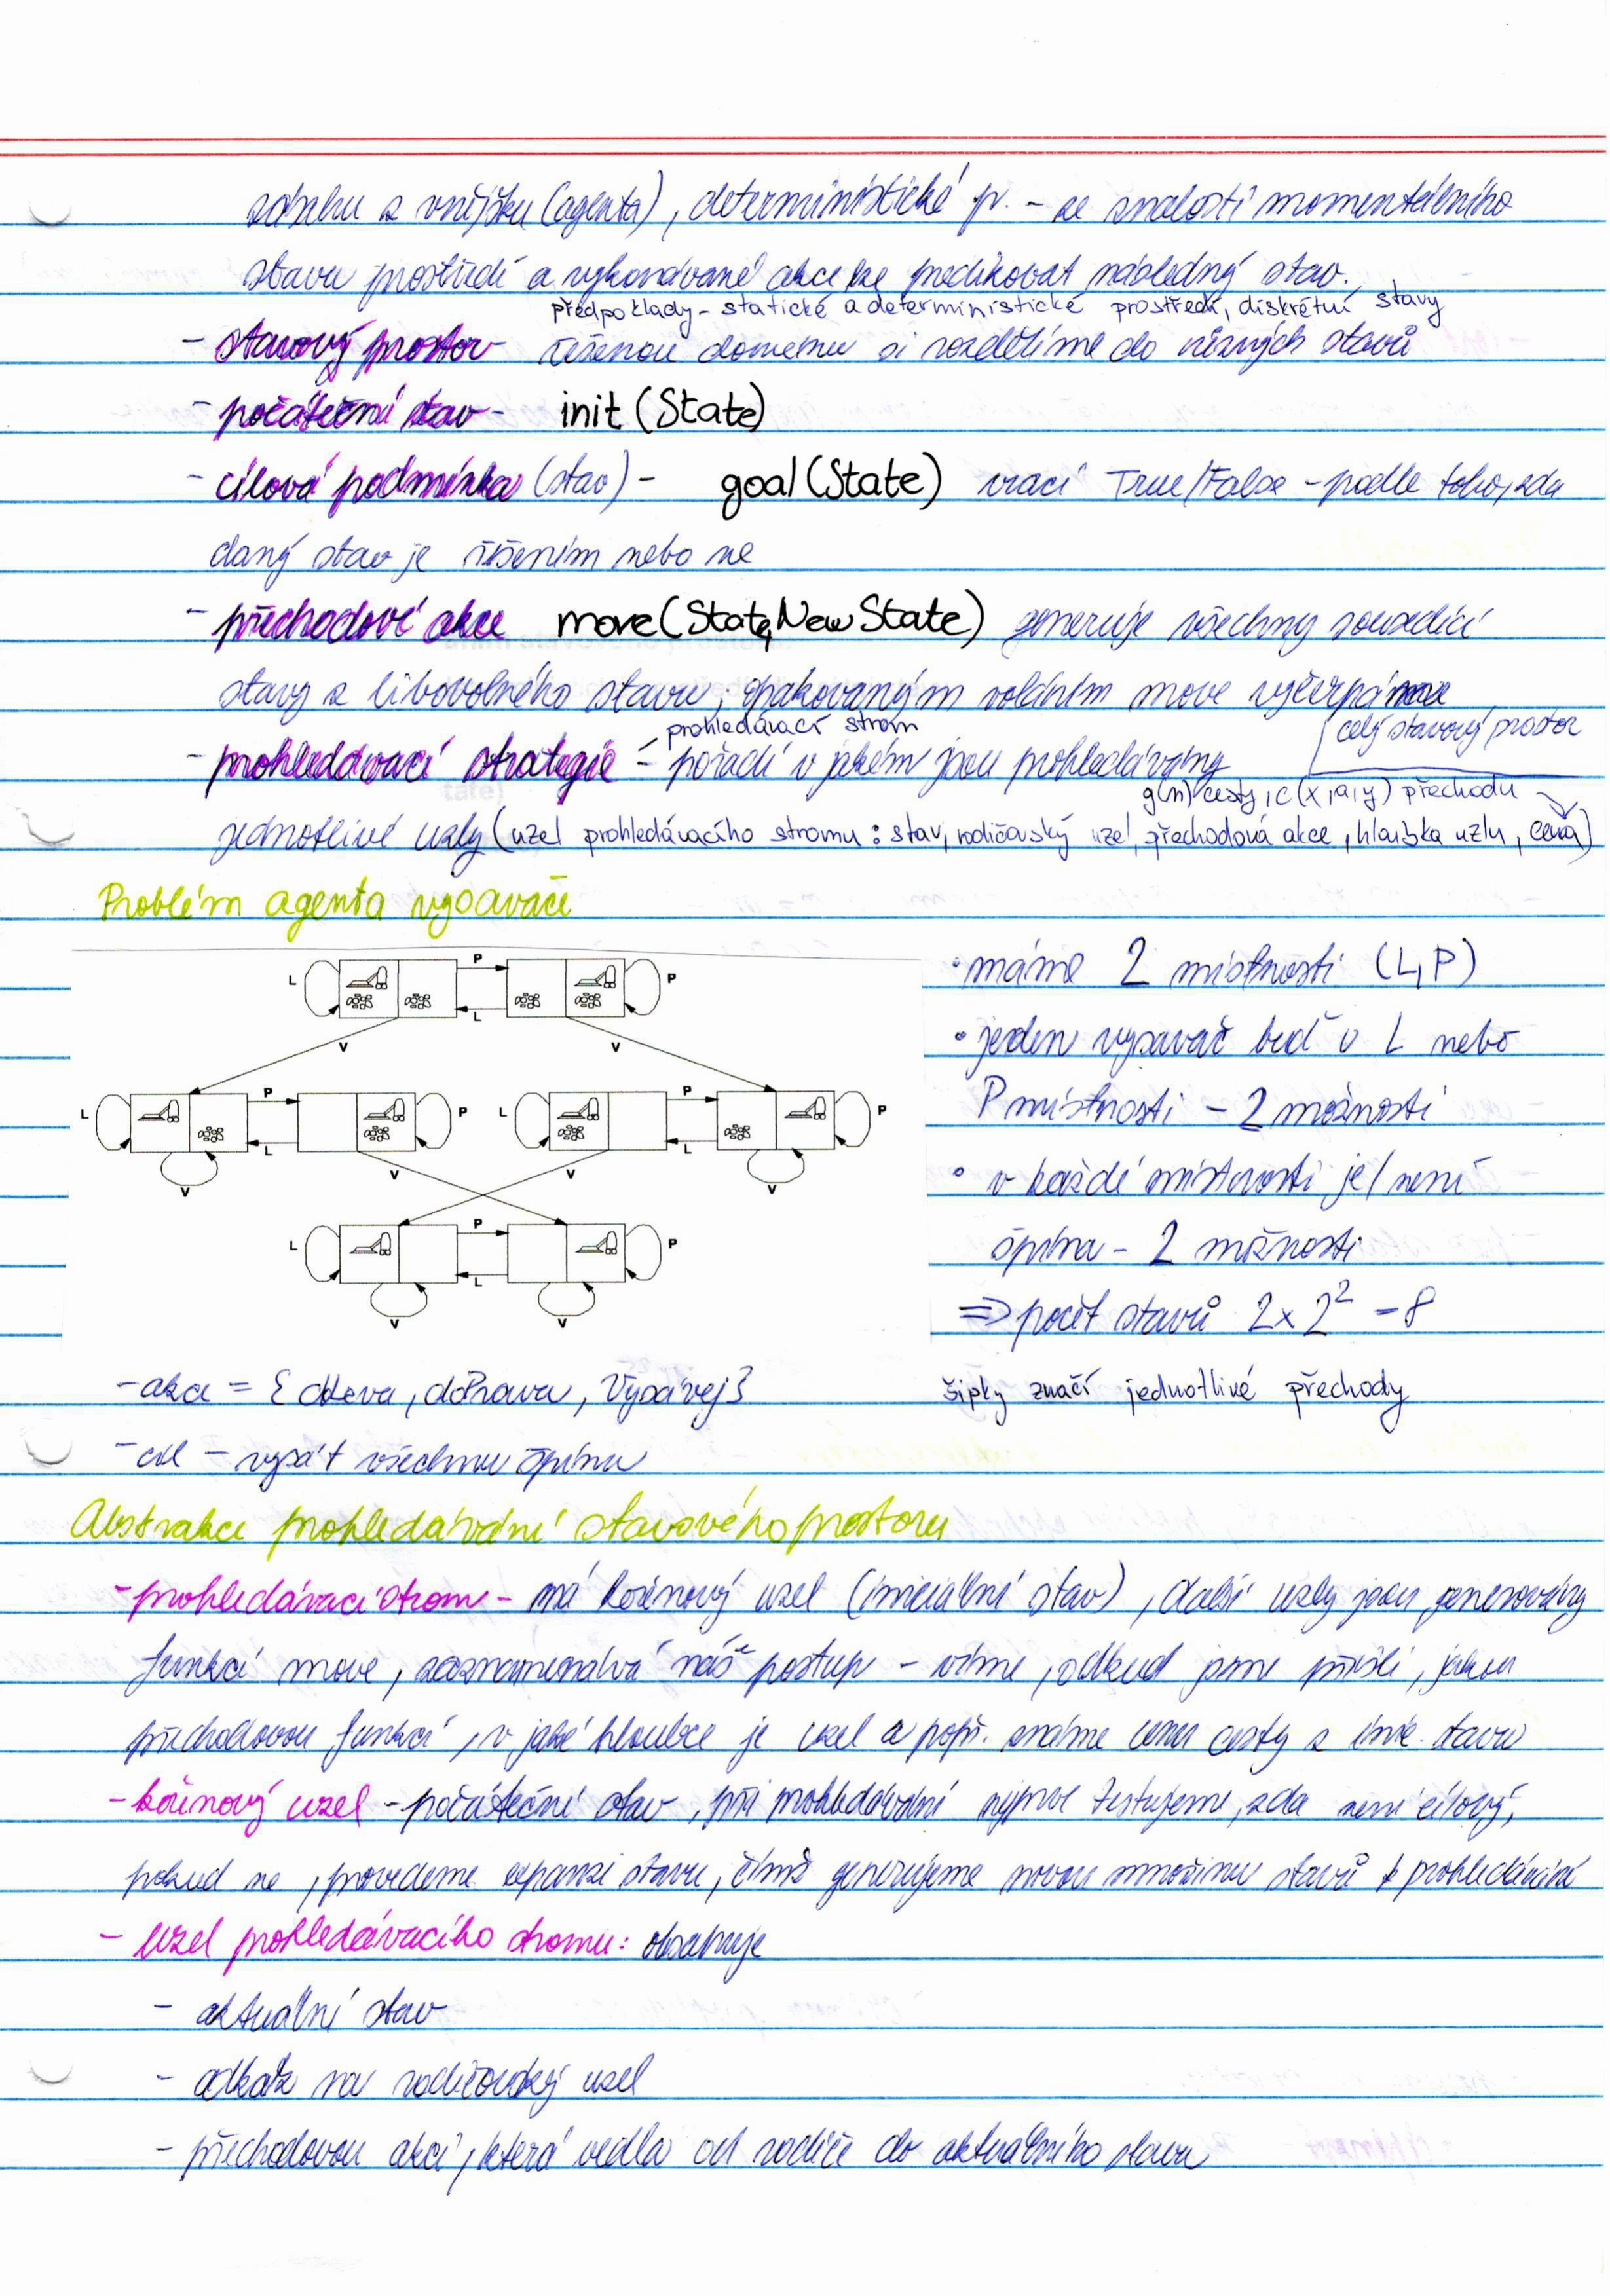 zásahu z vnějšku (agenta), deterministické pr. - ze znalosti momentálního
stavu prostředí a vykonávané akce lze predikovat následný stav.
předpoklady - statické a deterministické prostředí, diskrétní stavy
- stavový prostor - řešenou doménu si rozdělíme do různých stavů
- počáteční stav - init (State)
- cílová podmínka (stav) - goal (State) vrací True/False - podle toho, zda
daný stav je řešením nebo ne
- přechodové akce move (State, New State) generuje všechny sousedící
stavy z libovolného stavu, opakovaným voláním move vyčerpáme
celý stavový prostor
prohledávací strom
- prohledávací strategie - pořadí v jakém jsou prohledávány
g(n) cesty, c(x,a,y) přechodu
jednotlivé uzly (uzel prohledávacího stromu: stav, rodičovský uzel, přechodová akce, hloubka uzlu, cena)
Problém agenta vysavače
L P L P
V V
L P L P L P L P
V V V V
L P L P
V V
• máme 2 místnosti (L, P)
• jeden vysavač buď v L nebo
P místnosti - 2 možnosti
• v každé místnosti je/není
špína - 2 možnosti
=> počet stavů 2 x 2² = 8
- akce = {doLeva, doPrava, Vysávej}
šipky značí jednotlivé přechody
- cíl - vysát všechnu špínu
Abstrakce prohledávání stavového prostoru
- prohledávací strom - má kořenový uzel (iniciální stav), další uzly jsou generovány
funkcí move, zaznamenává náš postup - víme, odkud jsme přišli, jakou
přechodovou funkcí, v jaké hloubce je uzel a popř. známe cenu cesty z inic. stavu
- kořenový uzel - počáteční stav, při prohledávání nejprve testujeme, zda není cílový,
pokud ne, provedeme expanzi stavu, čímž generujeme novou množinu stavů k prohledávání
- uzel prohledávacího stromu: obsahuje
- aktuální stav
- odkaz na rodičovský uzel
- přechodovou akci, která vedla od rodiče do aktuálního stavu